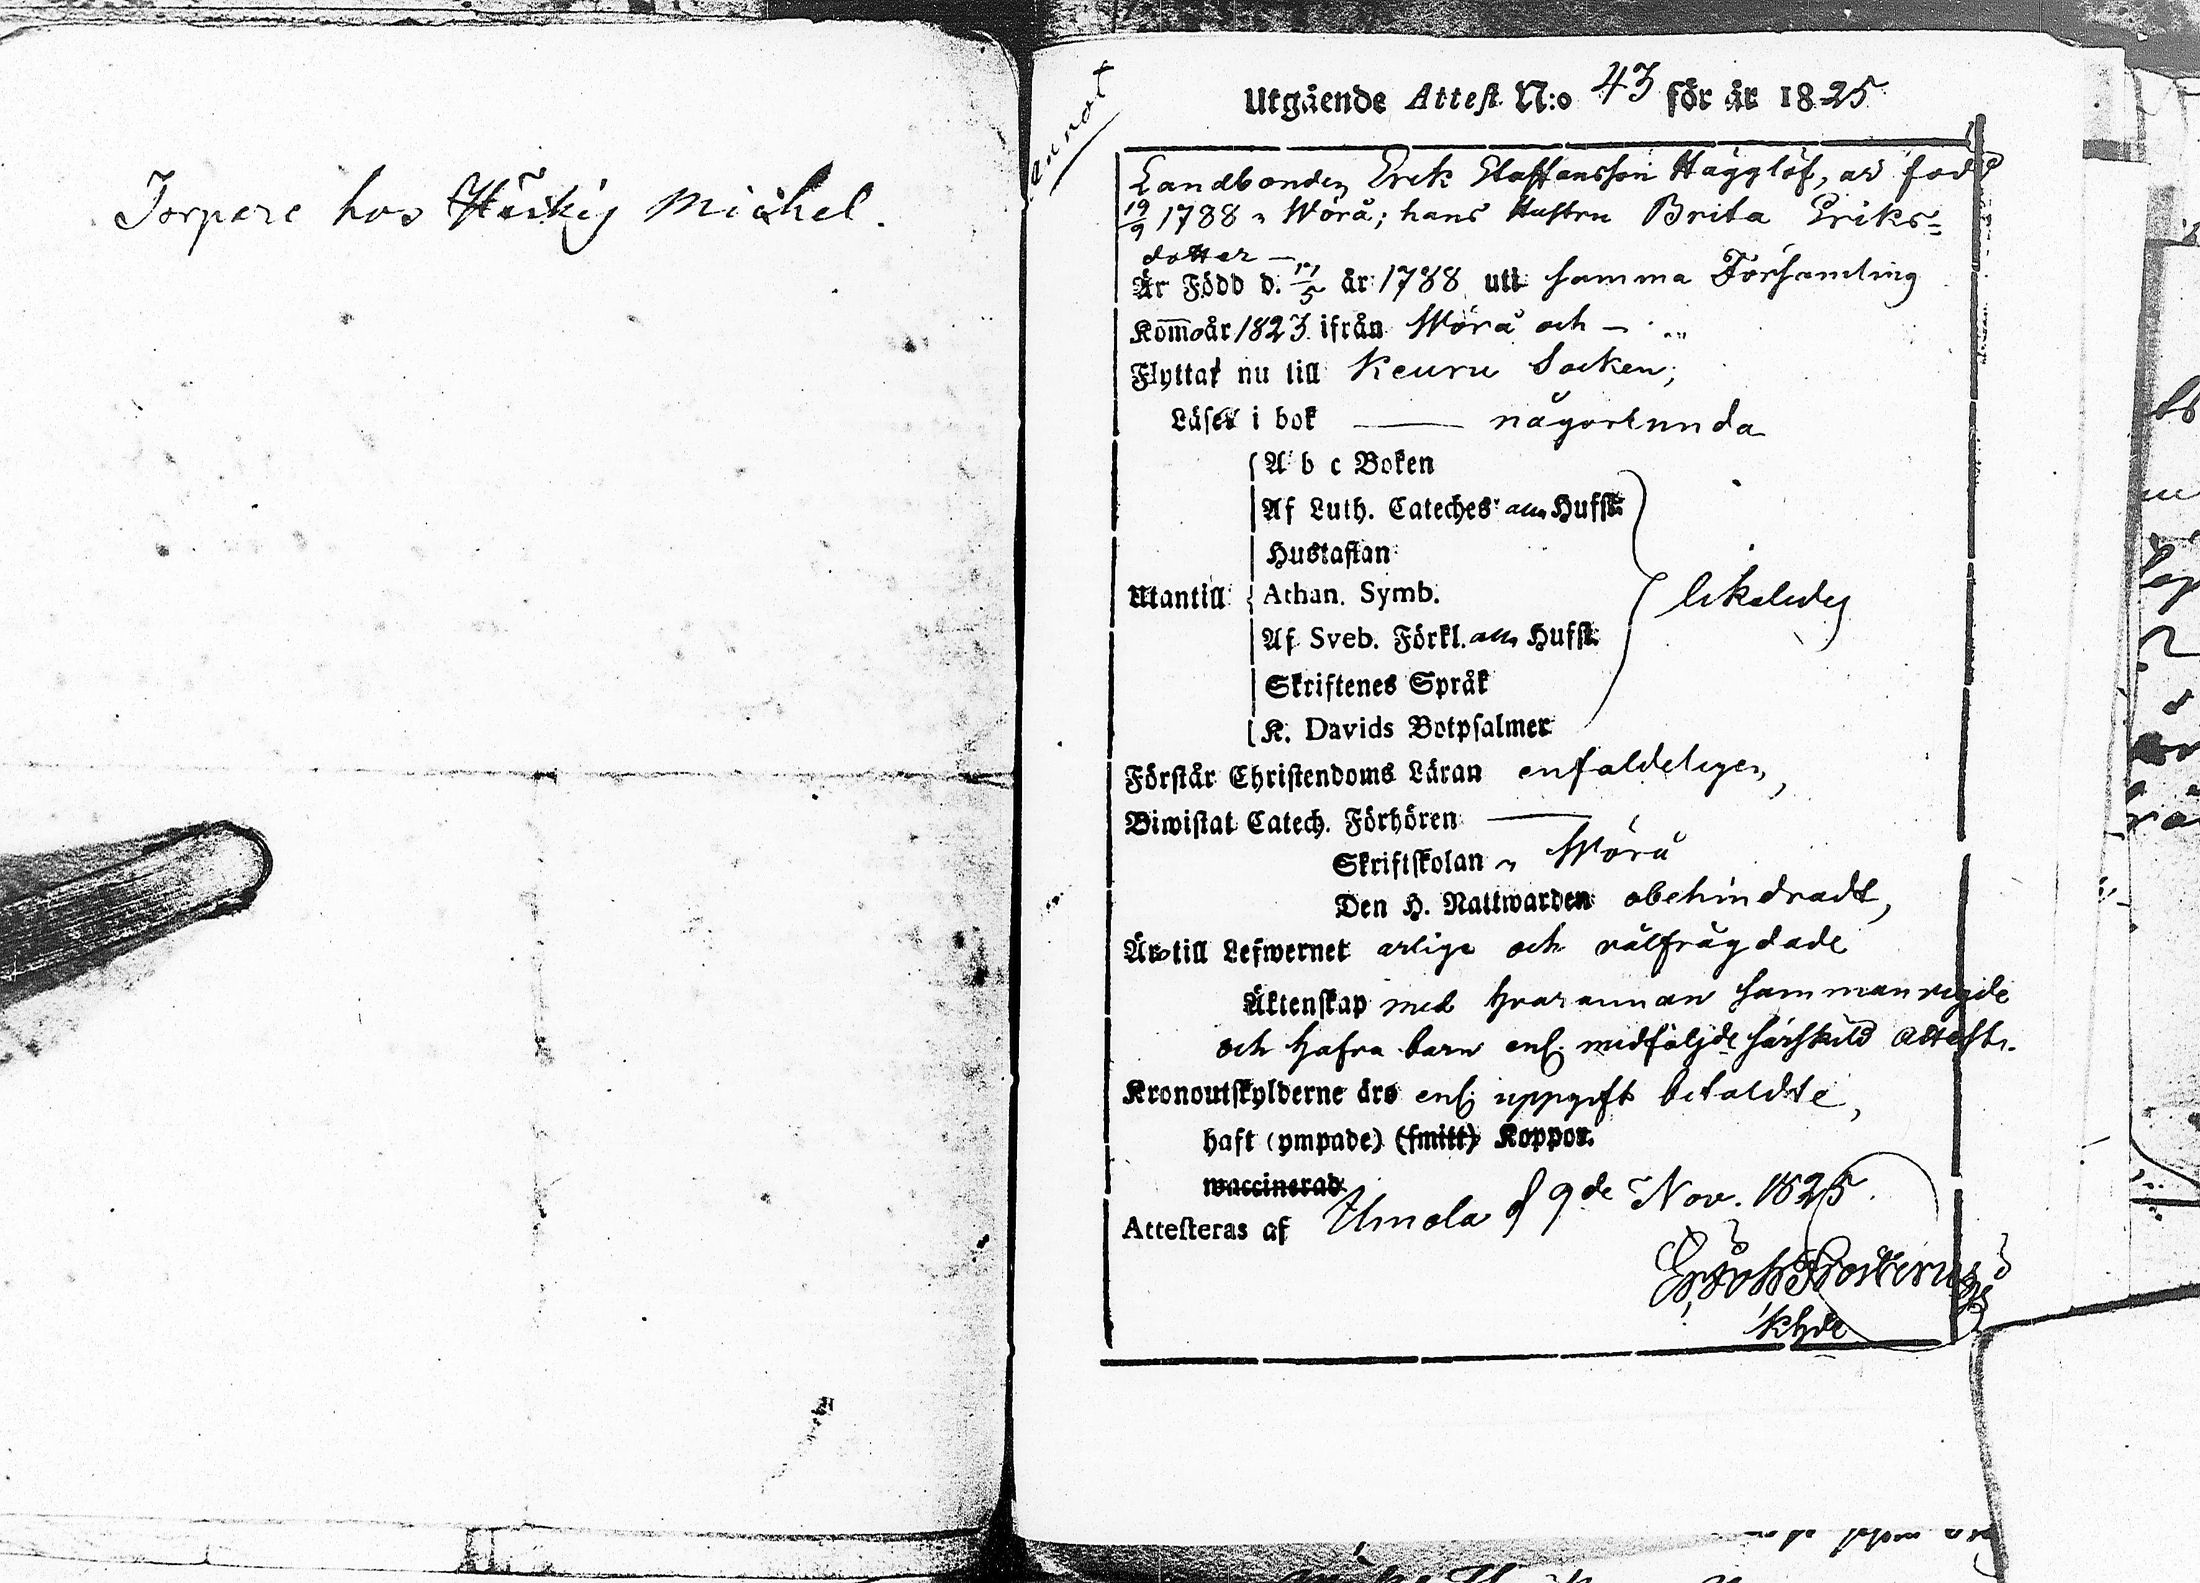 Torpare hos Häkkis Michel.
annot
Utgående Attest N:o 43 för år 1825
Landbonden Erik Staffansson Hägglöf, är född
19/9 1788 i Wörå; hans Hustru Brita Eriks=
dotter —
Är Född d. 17/5 år 1788 uti samma Församling
Kom̅o år 1823 ifrån Wörå och —
Flyttat nu till Keuru Socken;
Läser i bok — någorlunda
A b c Boken
Af Luth. Cateches alla Hufst:
Hustaflan
Utantill Athan. Symb. likaledes
Af Sveb. Förkl. alla Hufst.
Skriftenes Språk
K. Davids Botpsalmer
Förstår Christendoms Läran enfaldeligen,
Biwistat Catech. Förhören —
Skriftskolan i Wörå
Den H. Nattwarden obehindradt,
Äro till Lefwernet ärlige och välfrägdade
Äktenskap med hvarannan sammanvigde
och hafva barn enl. medföljde särskild Attest.
Kronoutskylderne äro enl. uppgift betaldte,
haft (ympade) (smitt) Koppor.
waccinerad
Attesteras af Ilmola d 9de Nov. 1825.